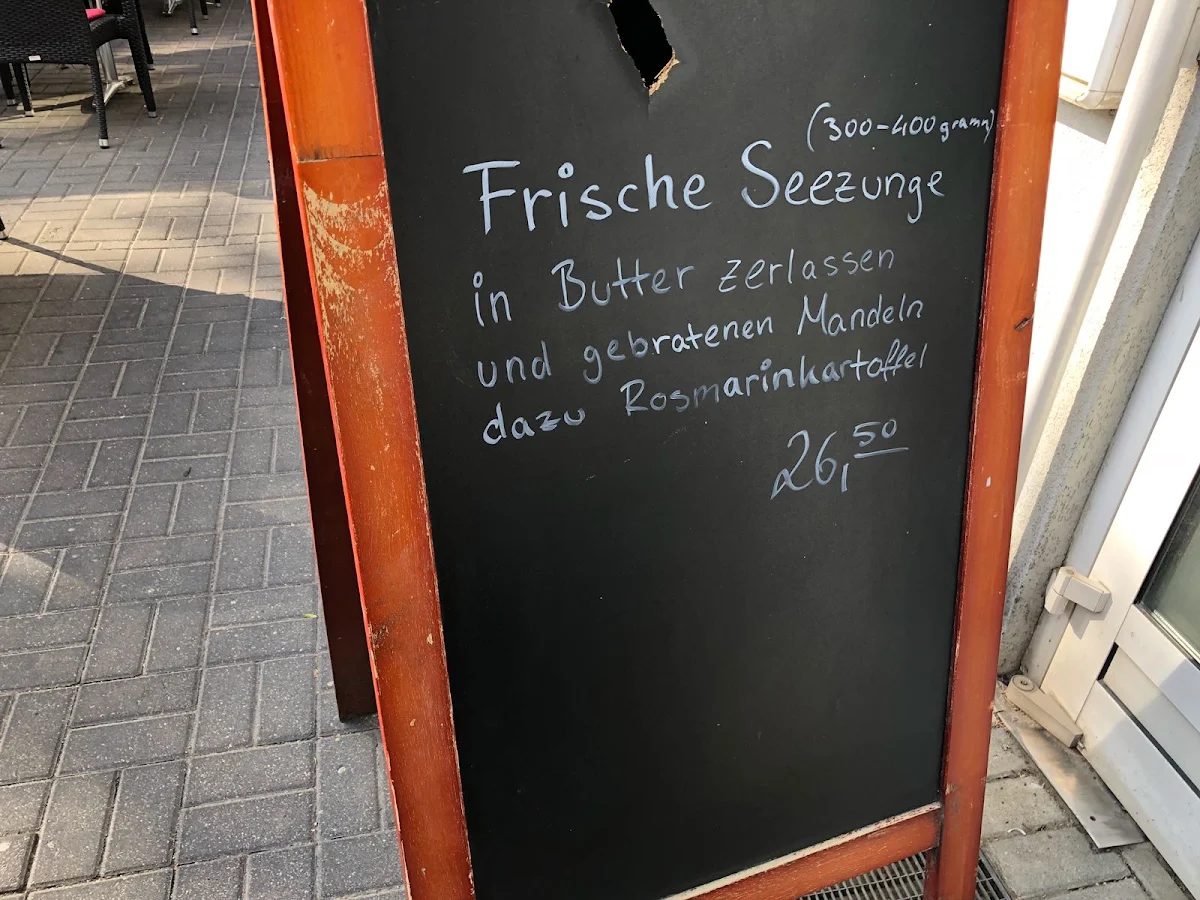 (300-400 gramm)
Frische Seezunge
in Butter zerlassen
und gebratenen Mandeln
dazu Rosmarinkartoffel
26,50